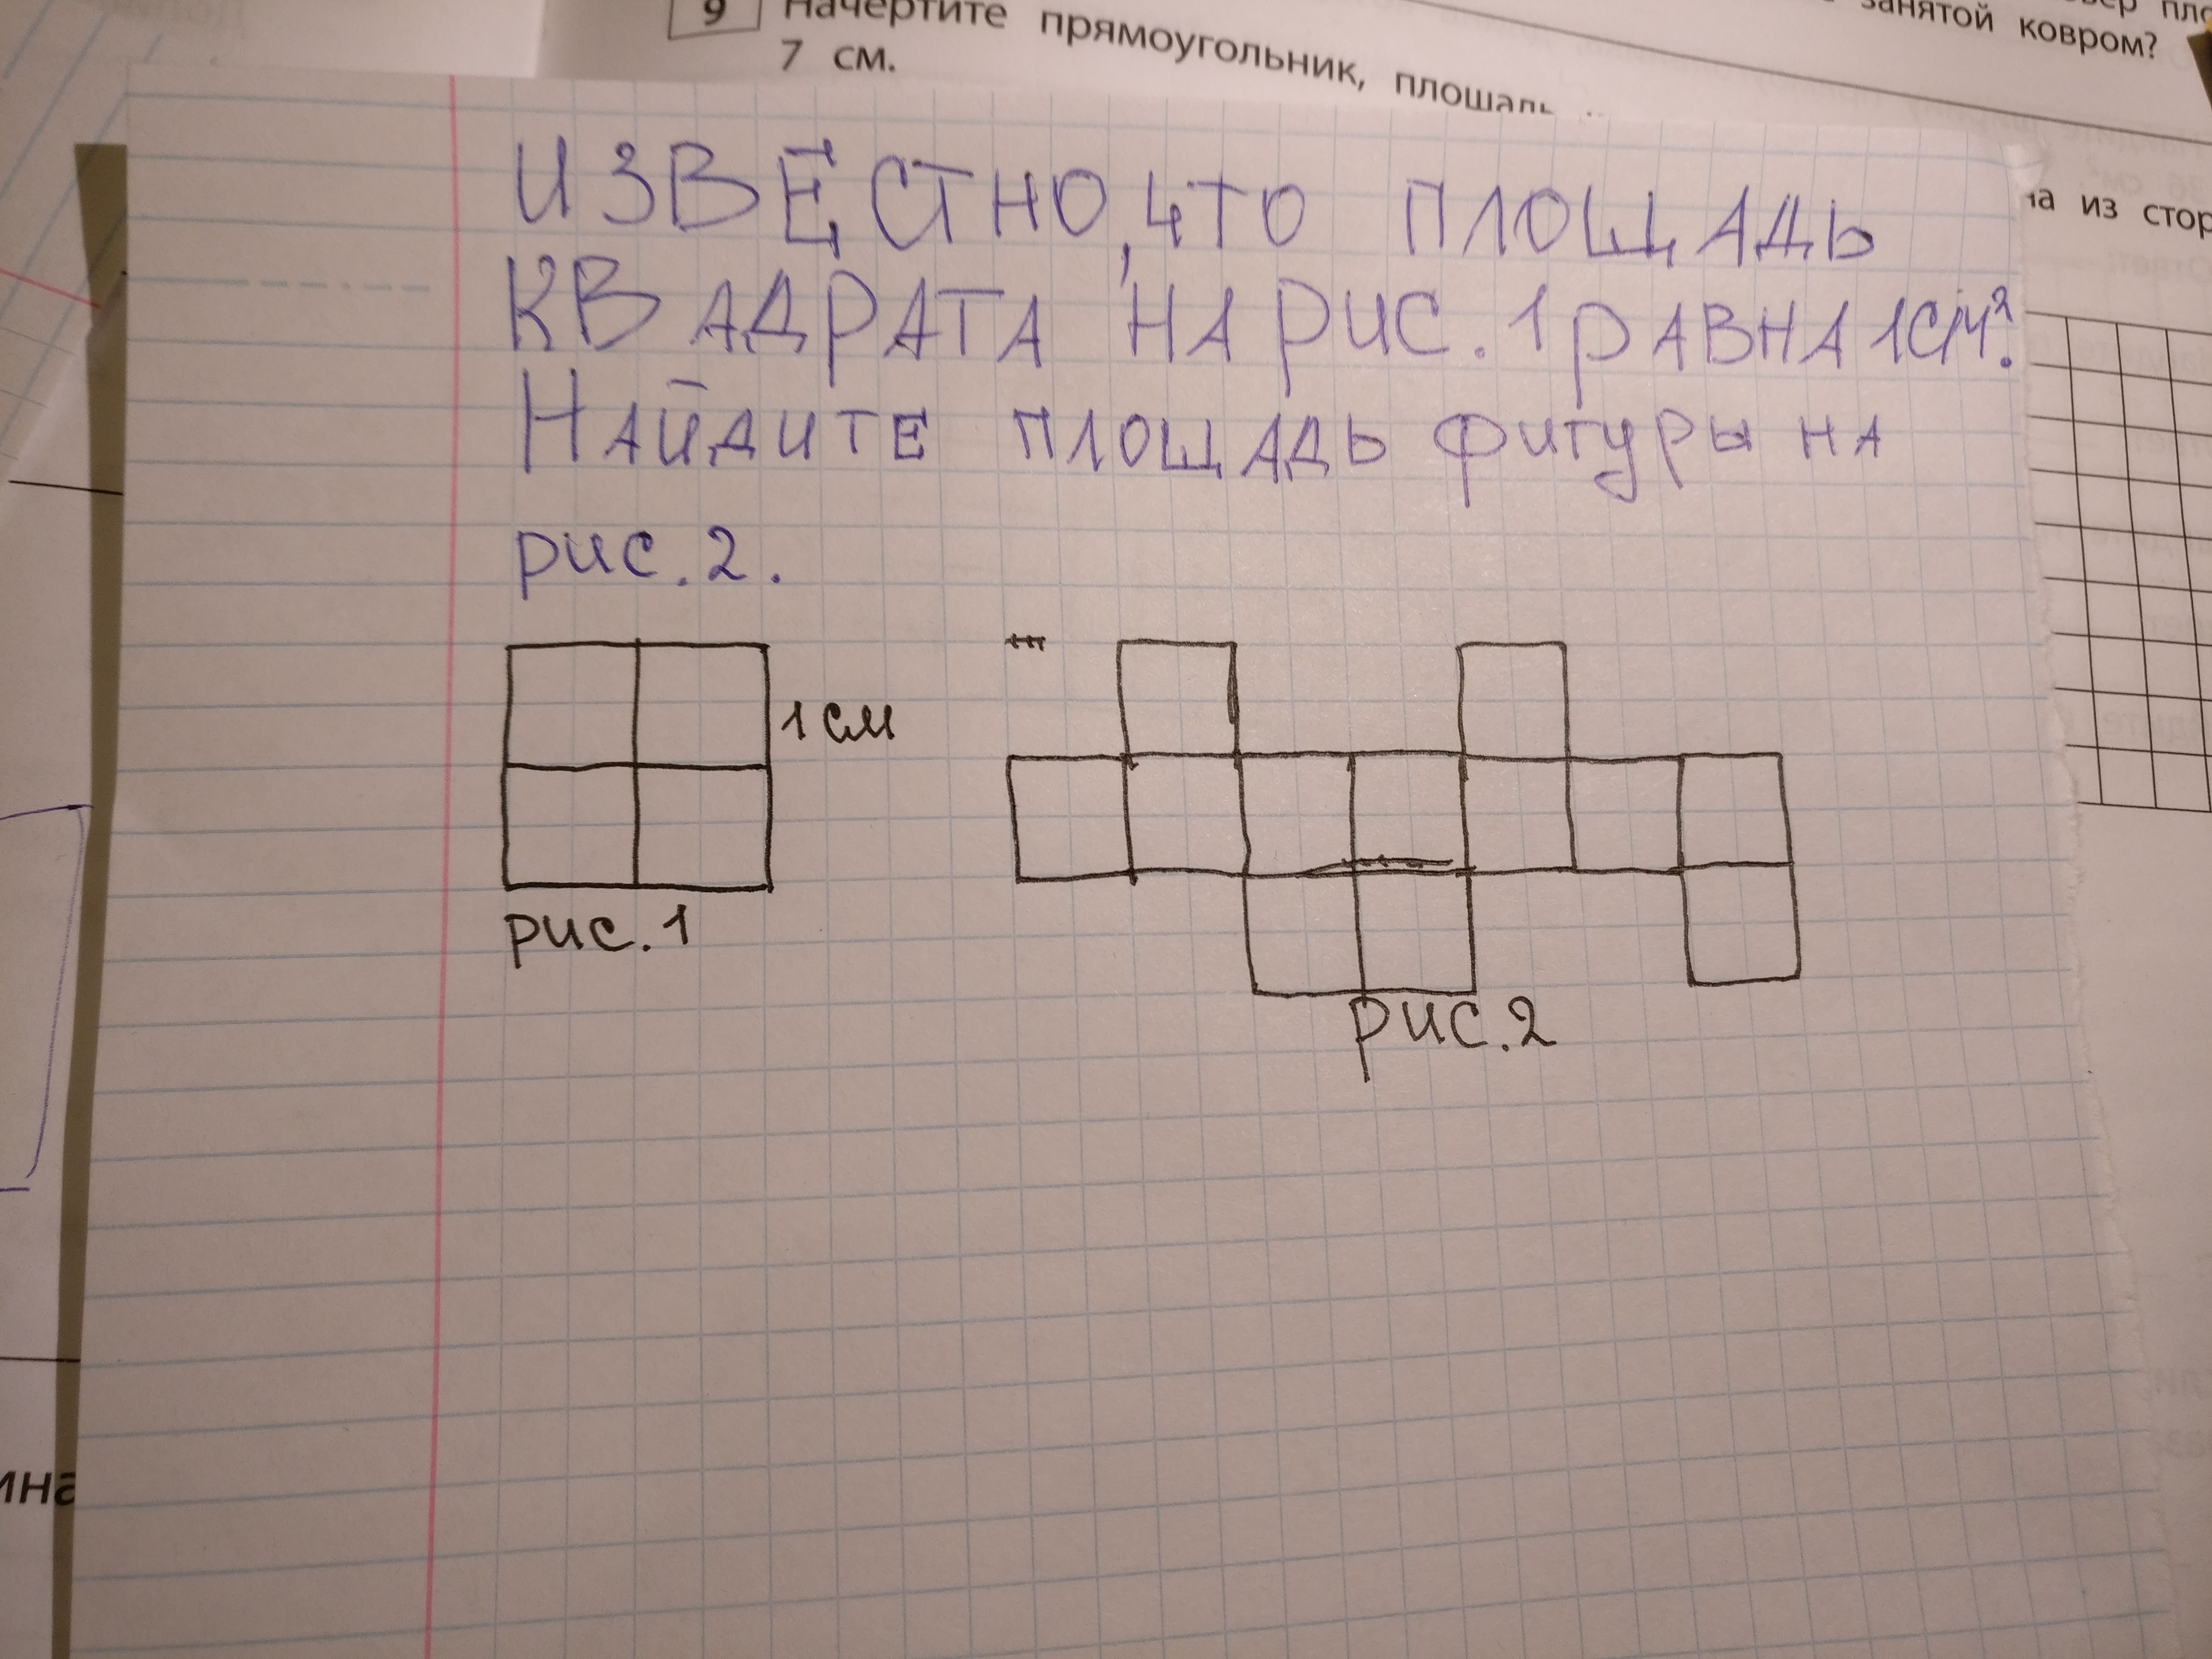 9 Начертите прямоугольник, площадь
7 см.
занятой ковром?
из стор
ИЗВЕСТНО, ЧТО ПЛОЩАДЬ
КВАДРАТА НА РИС. 1 РАВНА 1СМ².
НАЙДИТЕ ПЛОЩАДЬ ФИГУРЫ НА
РИС. 2.
1 СМ
РИС. 1
РИС. 2